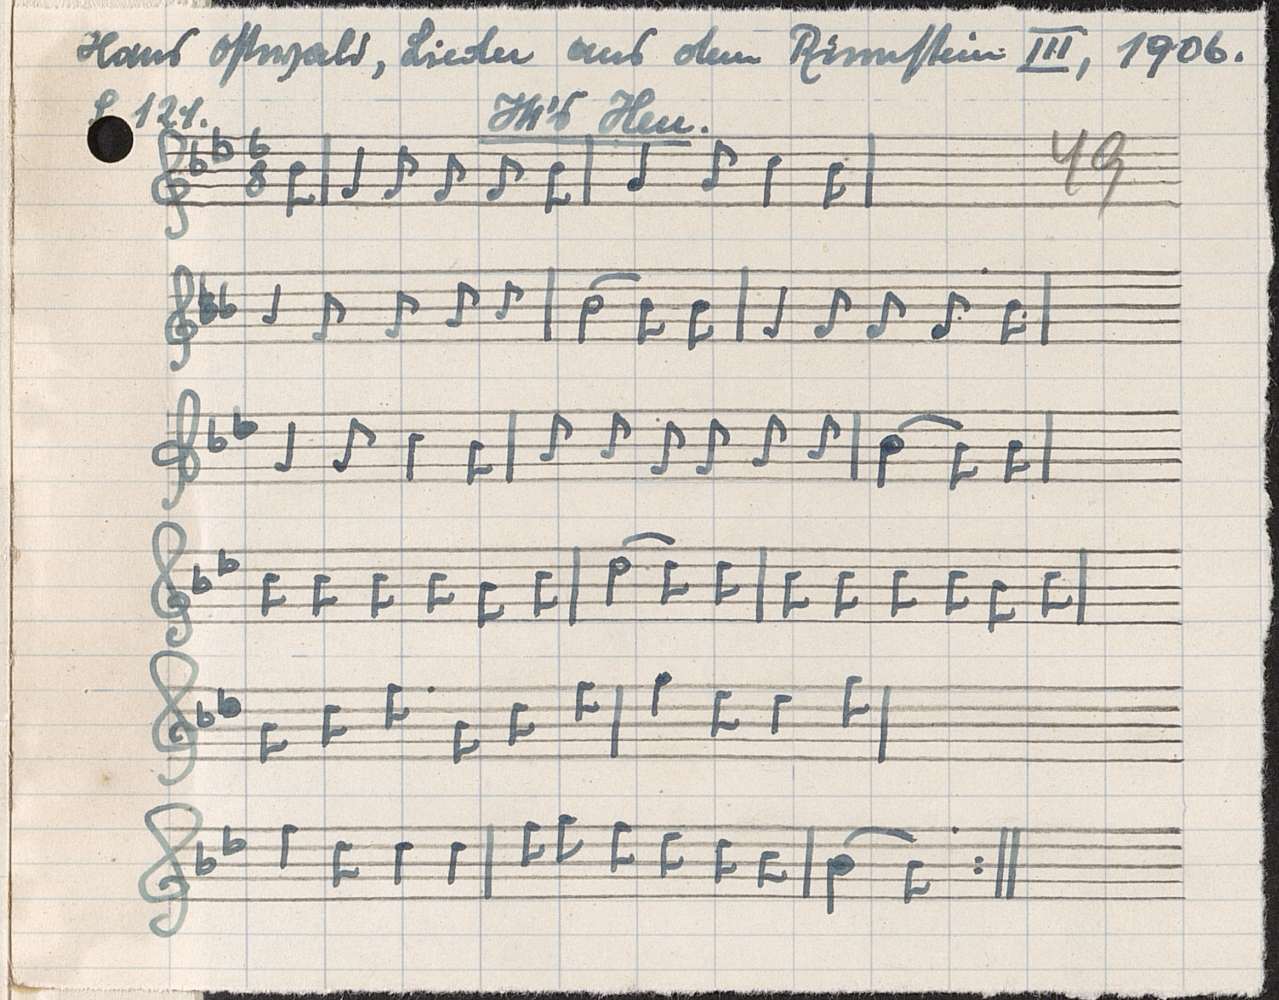 Hans Ostwald, Lieder aus dem Rinnstein III, 1906.
S. 121.
Heu.
49
6
8